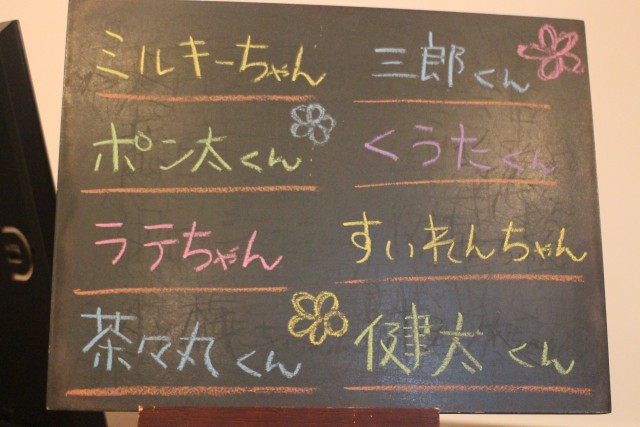 ミルキーちゃん
三郎くん
ポン太くん
くうたくん
ラテちゃん
すいれんちゃん
茶々丸くん
健太くん